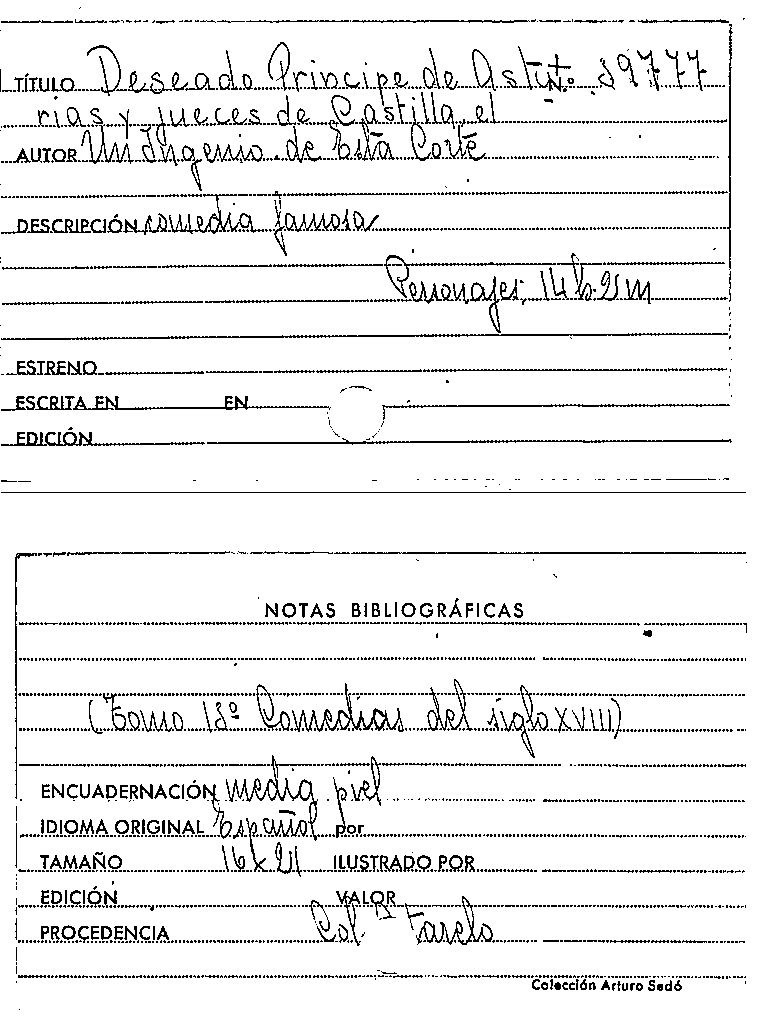 TÍTULO Deseado Principe de Astu N.º 59777
rias y jueces de Castilla, el
AUTOR Un Ingenio de Esta Corte
DESCRIPCIÓN comedia famosa
Personajes; 14 h. 2 m
ESTRENO
ESCRITA EN EN
EDICIÓN
NOTAS BIBLIOGRÁFICAS
(Tomo 18º Comedias del siglo XVIII)
ENCUADERNACIÓN media piel
IDIOMA ORIGINAL Español por
TAMAÑO 16 x 21 ILUSTRADO POR
EDICIÓN VALOR
PROCEDENCIA Col.
Colección Arturo Sedó